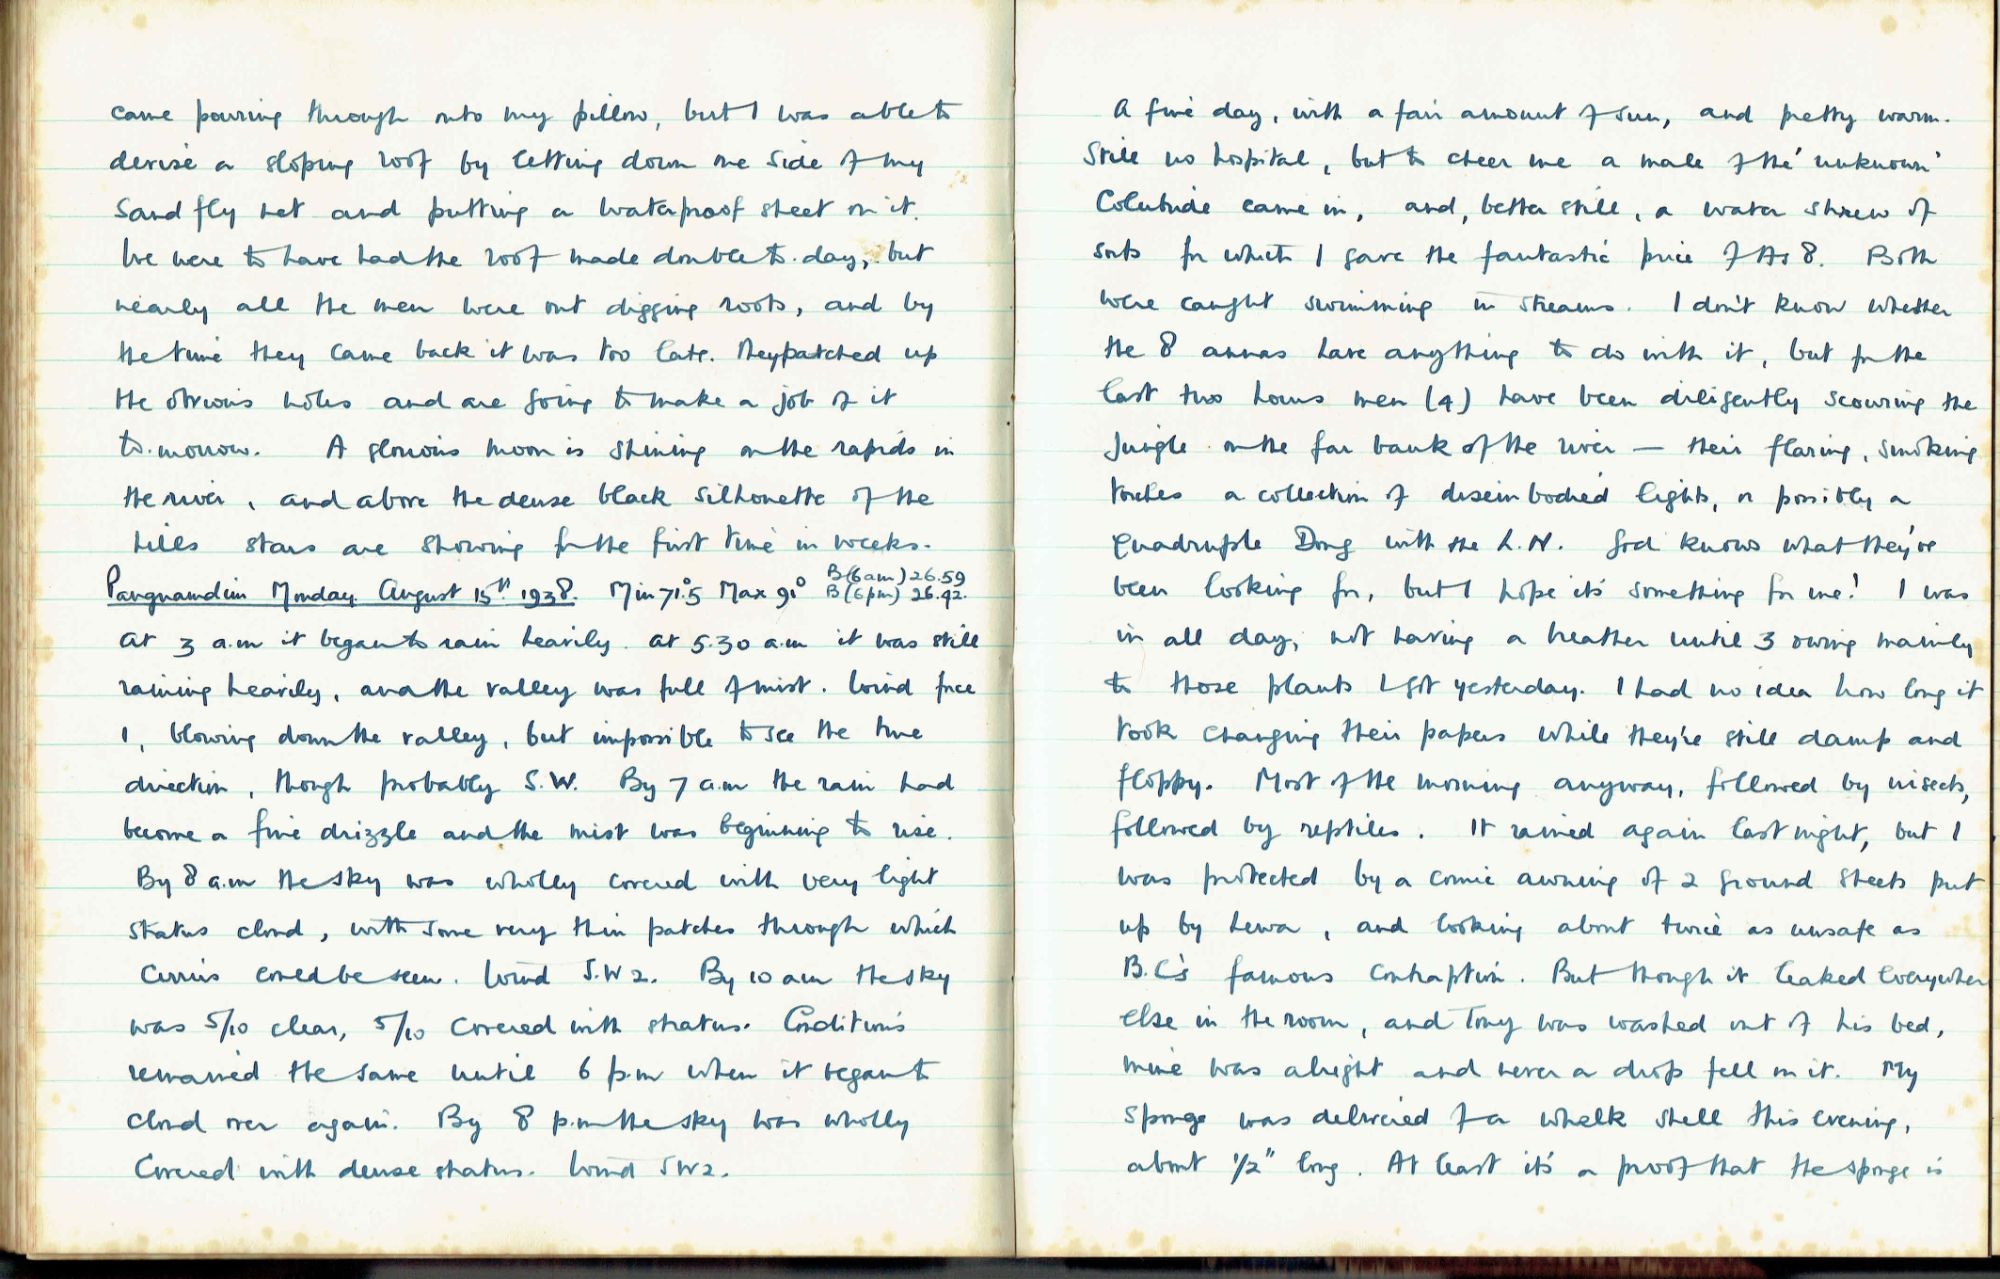 came pouring through onto my pillow, but I was able to
devise a sloping roof by letting down one side of my
Sand fly net and putting a waterproof sheet on it.
We were to have had the roof made double to-day, but
nearly all the men were out digging roots, and by
the time they came back it was too late. They patched up
the obvious holes and are going to make a job of it
to-morrow. A glorious moon is shining on the rapids in
the river, and above the dense black silhouette of the
hills stars are showing for the first time in weeks.
Pangnamdim Monday August 15th 1938. Min 71°.5 Max 91° B (6am) 26.59
B (6pm) 26.42.
At 3 a.m it began to rain heavily. At 5.30 a.m it was still
raining heavily, and the valley was full of mist. Wind force
1, blowing down the valley, but impossible to see the true
direction, though probably S.W. By 7 a.m the rain had
become a fine drizzle and the mist was beginning to rise.
By 8 a.m the sky was wholly covered with very light
stratus cloud, with some very thin patches through which
Cirrus could be seen. Wind S.W 2. By 10 am the sky
was 5/10 clear, 5/10 covered with stratus. Conditions
remained the same until 6 p.m when it began to
cloud over again. By 8 p.m the sky was wholly
Covered with dense stratus. Wind SW2.
A fine day, with a fair amount of sun, and pretty warm.
Still no hospital, but to cheer me a male of the 'unknown'
Colubride came in, and, better still, a water shrew of
sorts for which I gave the fantastic price of As 8. Both
were caught swimming in streams. I don't know whether
the 8 annas have anything to do with it, but for the
last two hours men (4) have been diligently scouring the
Jungle on the far bank of the river — their flaring, smoking
torches a collection of disembodied lights, or possibly a
quadruple Dong with the L.N. God knows what they've
been looking for, but I hope it's something for me! I was
in all day, not having a breather until 3 owing mainly
to those plants I got yesterday. I had no idea how long it
took changing their papers while they're still damp and
floppy. Most of the morning anyway, followed by insects,
followed by reptiles. It rained again last night, but I
was protected by a comic awning of 2 ground sheets put
up by Lewa, and looking about twice as unsafe as
B.C's famous contraption. But though it leaked everywhere
else in the room, and Tony was washed out of his bed,
mine was alright and never a drop fell on it. My
sponge was delivered of a whelk shell this evening,
about 1/2" long. At least it's a proof that the sponge is